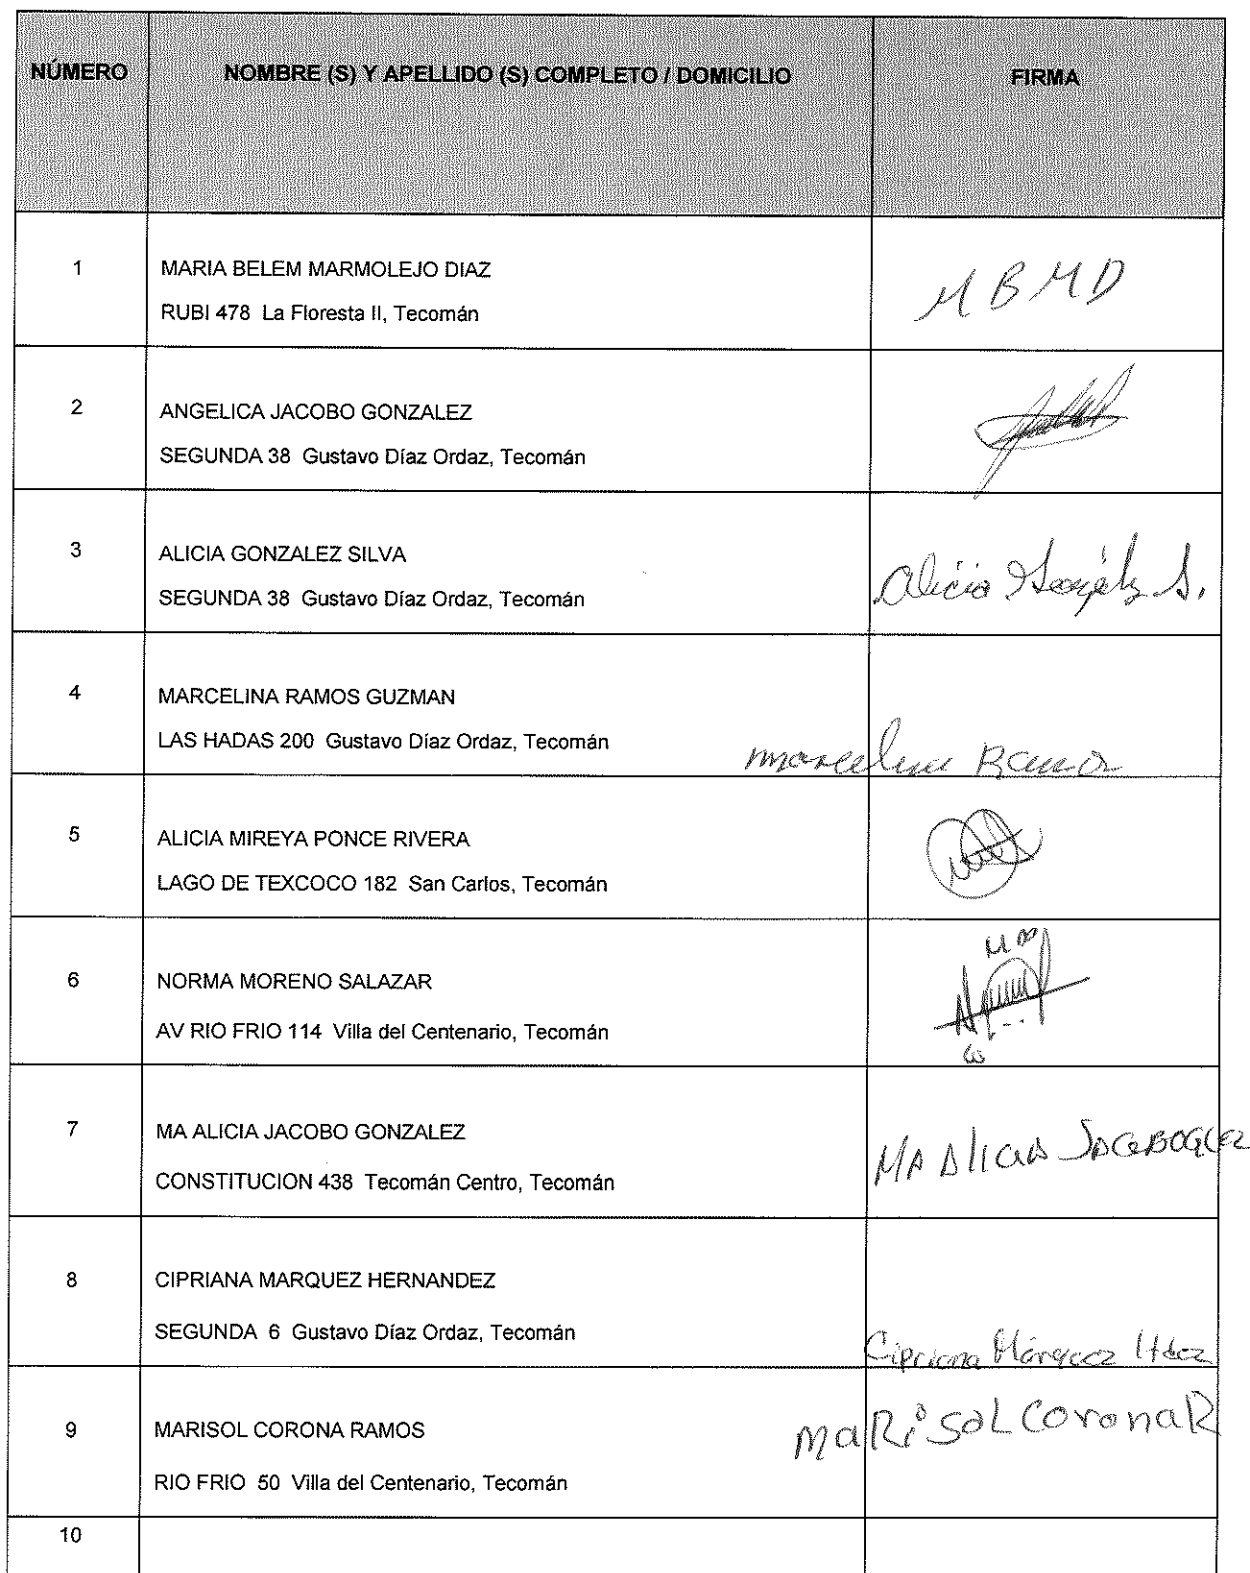 NÚMERO NOMBRE (S) Y APELLIDO (S) COMPLETO / DOMICILIO FIRMA
1 MARIA BELEM MARMOLEJO DIAZ
RUBI 478 La Floresta II, Tecomán
M B M D
2 ANGELICA JACOBO GONZALEZ
SEGUNDA 38 Gustavo Díaz Ordaz, Tecomán
3 ALICIA GONZALEZ SILVA
SEGUNDA 38 Gustavo Díaz Ordaz, Tecomán
Alicia S.
4 MARCELINA RAMOS GUZMAN
LAS HADAS 200 Gustavo Díaz Ordaz, Tecomán
5 ALICIA MIREYA PONCE RIVERA
LAGO DE TEXCOCO 182 San Carlos, Tecomán
6 NORMA MORENO SALAZAR
AV RIO FRIO 114 Villa del Centenario, Tecomán
7 MA ALICIA JACOBO GONZALEZ
CONSTITUCION 438 Tecomán Centro, Tecomán
MA Alicia
8 CIPRIANA MARQUEZ HERNANDEZ
SEGUNDA 6 Gustavo Díaz Ordaz, Tecomán
Cipriana Márquez Hdez
9 MARISOL CORONA RAMOS
maRiSOL CoronaR
RIO FRIO 50 Villa del Centenario, Tecomán
10